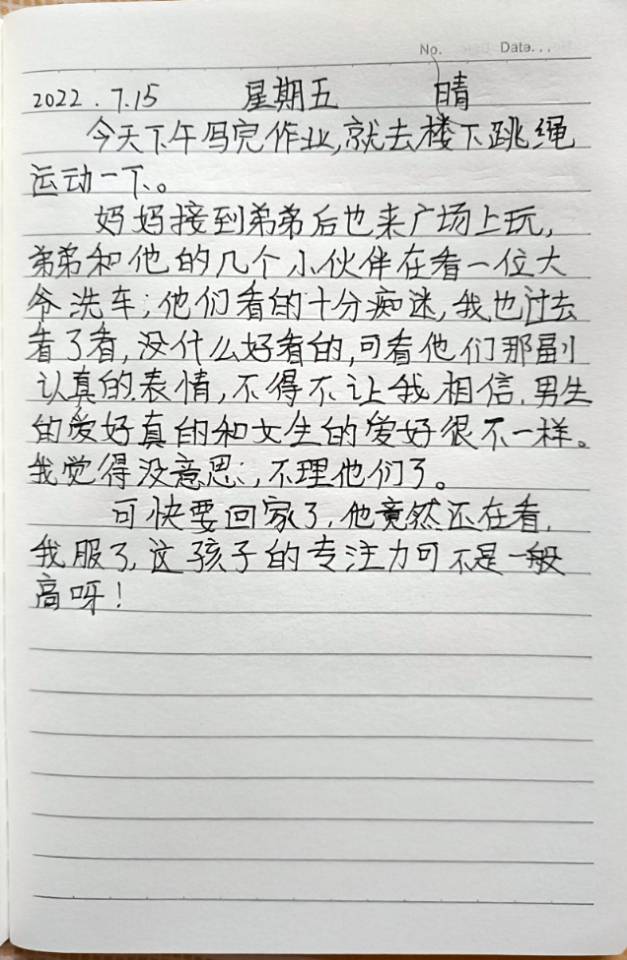 No. Date...
2022.7.15 星期五 晴
今天下午写完作业,就去楼下跳绳
运动一下。
妈妈接到弟弟后也来广场上玩,
弟弟和他的几个小伙伴在看一位大
爷洗车;他们看的十分痴迷,我也过去
看了看,没什么好看的,可看他们那副
认真的表情,不得不让我相信,男生
的爱好真的和女生的爱好很不一样。
我觉得没意思,不理他们了。
可快要回家了,他竟然还在看,
我服了,这孩子的专注力可不是一般
高呀!